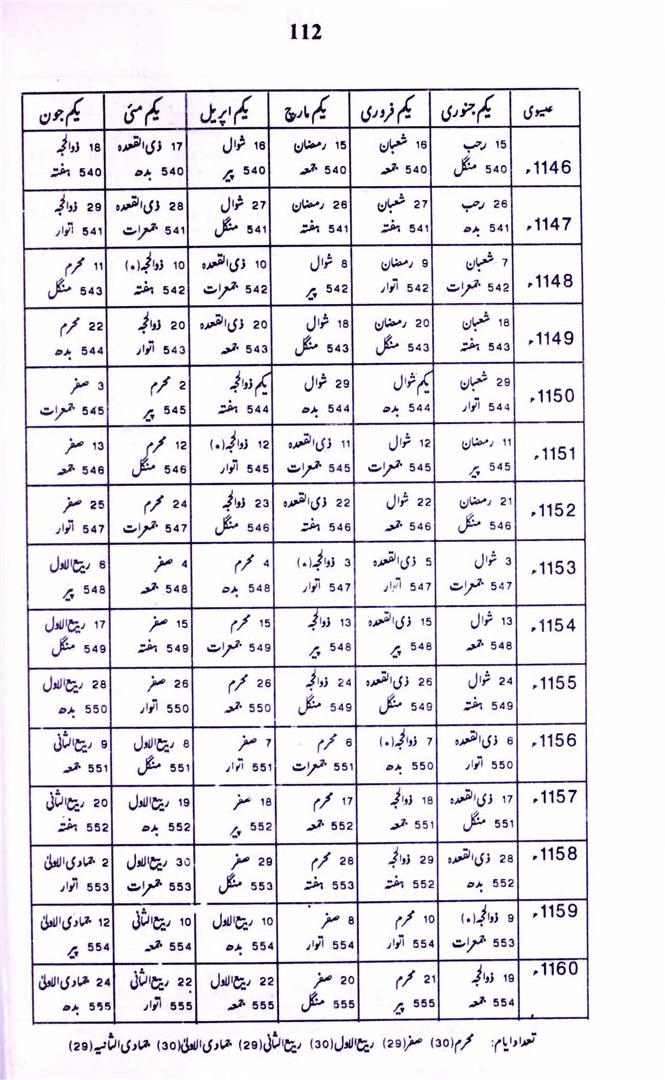 112
عیسوی یکم جنوری یکم فروری یکم مارچ یکم اپریل یکم مئی یکم جون
1146ء 15 رجب 16 شعبان 15 رمضان 16 شوال 17 ذی القعدہ 18 ذوالحجہ
540 منگل 540 جمعہ 540 جمعہ 540 پیر 540 بدھ 540 ہفتہ
1147ء 26 رجب 27 شعبان 26 رمضان 27 شوال 28 ذی القعدہ 29 ذوالحجہ
541 بدھ 541 ہفتہ 541 ہفتہ 541 منگل 541 جمعرات 541 اتوار
1148ء 7 شعبان 9 رمضان 8 شوال 10 ذی القعدہ 10 ذوالحجہ (*) 11 محرم
542 جمعرات 542 اتوار 542 پیر 542 جمعرات 542 ہفتہ 543 منگل
1149ء 18 شعبان 20 رمضان 18 شوال 20 ذی القعدہ 20 ذوالحجہ 22 محرم
543 ہفتہ 543 منگل 543 منگل 543 جمعہ 543 اتوار 544 بدھ
1150ء 29 شعبان یکم شوال 29 شوال یکم ذوالحجہ 2 محرم 3 صفر
544 اتوار 544 بدھ 544 بدھ 544 ہفتہ 545 پیر 545 جمعرات
1151ء 11 رمضان 12 شوال 11 ذی القعدہ 12 ذوالحجہ (*) 12 محرم 13 صفر
545 پیر 545 جمعرات 545 جمعرات 545 اتوار 546 منگل 546 جمعہ
1152ء 21 رمضان 22 شوال 22 ذی القعدہ 23 ذوالحجہ 24 محرم 25 صفر
546 منگل 546 جمعہ 546 ہفتہ 546 منگل 547 جمعرات 547 اتوار
1153ء 3 شوال 5 ذی القعدہ 3 ذوالحجہ (*) 4 محرم 4 صفر 6 ربیع الاول
547 جمعرات 547 اتوار 547 اتوار 548 بدھ 548 جمعہ 548 پیر
1154ء 13 شوال 15 ذی القعدہ 13 ذوالحجہ 15 محرم 15 صفر 17 ربیع الاول
548 جمعہ 548 پیر 548 پیر 549 جمعرات 549 ہفتہ 549 منگل
1155ء 24 شوال 26 ذی القعدہ 24 ذوالحجہ 26 محرم 26 صفر 28 ربیع الاول
549 ہفتہ 549 منگل 549 منگل 550 جمعہ 550 اتوار 550 بدھ
1156ء 6 ذی القعدہ 7 ذوالحجہ (*) 6 محرم 7 صفر 8 ربیع الاول 9 ربیع الثانی
550 اتوار 550 بدھ 551 جمعرات 551 اتوار 551 منگل 551 جمعہ
1157ء 17 ذی القعدہ 18 ذوالحجہ 17 محرم 18 صفر 19 ربیع الاول 20 ربیع الثانی
551 منگل 551 جمعہ 552 جمعہ 552 پیر 552 بدھ 552 ہفتہ
1158ء 28 ذی القعدہ 29 ذوالحجہ 28 محرم 29 صفر 30 ربیع الاول 2 جمادی الاولیٰ
552 بدھ 552 ہفتہ 553 ہفتہ 553 منگل 553 جمعرات 553 اتوار
1159ء 9 ذوالحجہ (*) 10 محرم 8 صفر 10 ربیع الاول 10 ربیع الثانی 12 جمادی الاولیٰ
553 جمعرات 554 اتوار 554 اتوار 554 بدھ 554 جمعہ 554 پیر
1160ء 19 ذوالحجہ 21 محرم 20 صفر 22 ربیع الاول 22 ربیع الثانی 24 جمادی الاولیٰ
554 جمعہ 555 پیر 555 منگل 555 جمعہ 555 اتوار 555 بدھ
تعداد ایام: محرم (30) صفر (29) ربیع الاول (30) ربیع الثانی (29) جمادی الاولیٰ (30) جمادی الثانیہ (29)